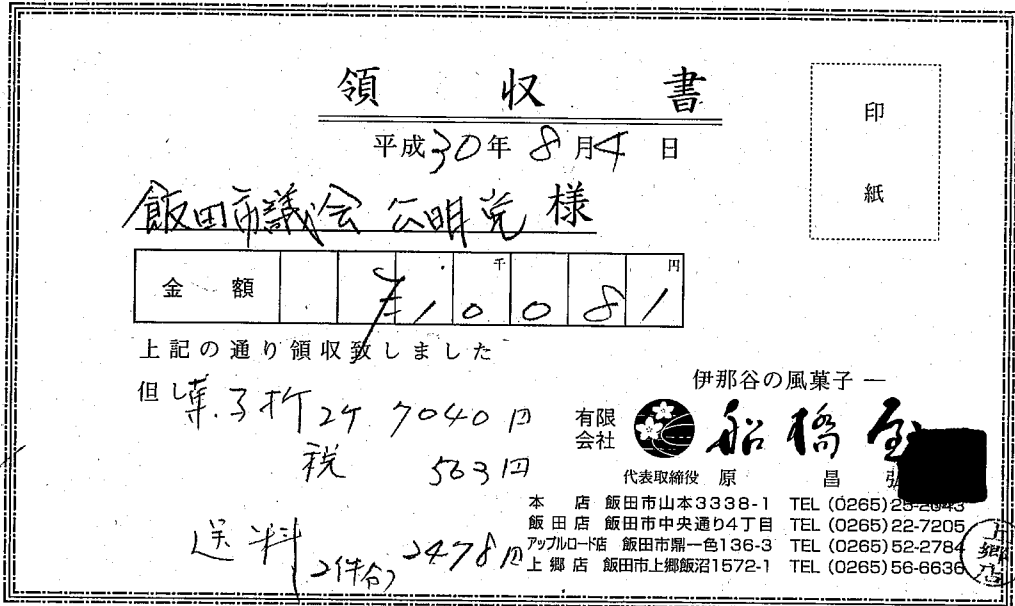 領収書
印紙
平成30年8月4日
飯田市議会 公明党 様
金額 千 円
¥10081
上記の通り領収致しました
但し菓子折2ケ 7040円
税 563円
送料 2件分 2478円
伊那谷の風菓子 ―
有限会社 船橋屋
代表取締役 原 昌
本店 飯田市山本3338-1 TEL (0265)25-2643
飯田店 飯田市中央通り4丁目 TEL (0265)22-7205
アップルロード店 飯田市鼎一色136-3 TEL (0265)52-2784
上郷店 飯田市上郷飯沼1572-1 TEL (0265)56-6636
上郷店